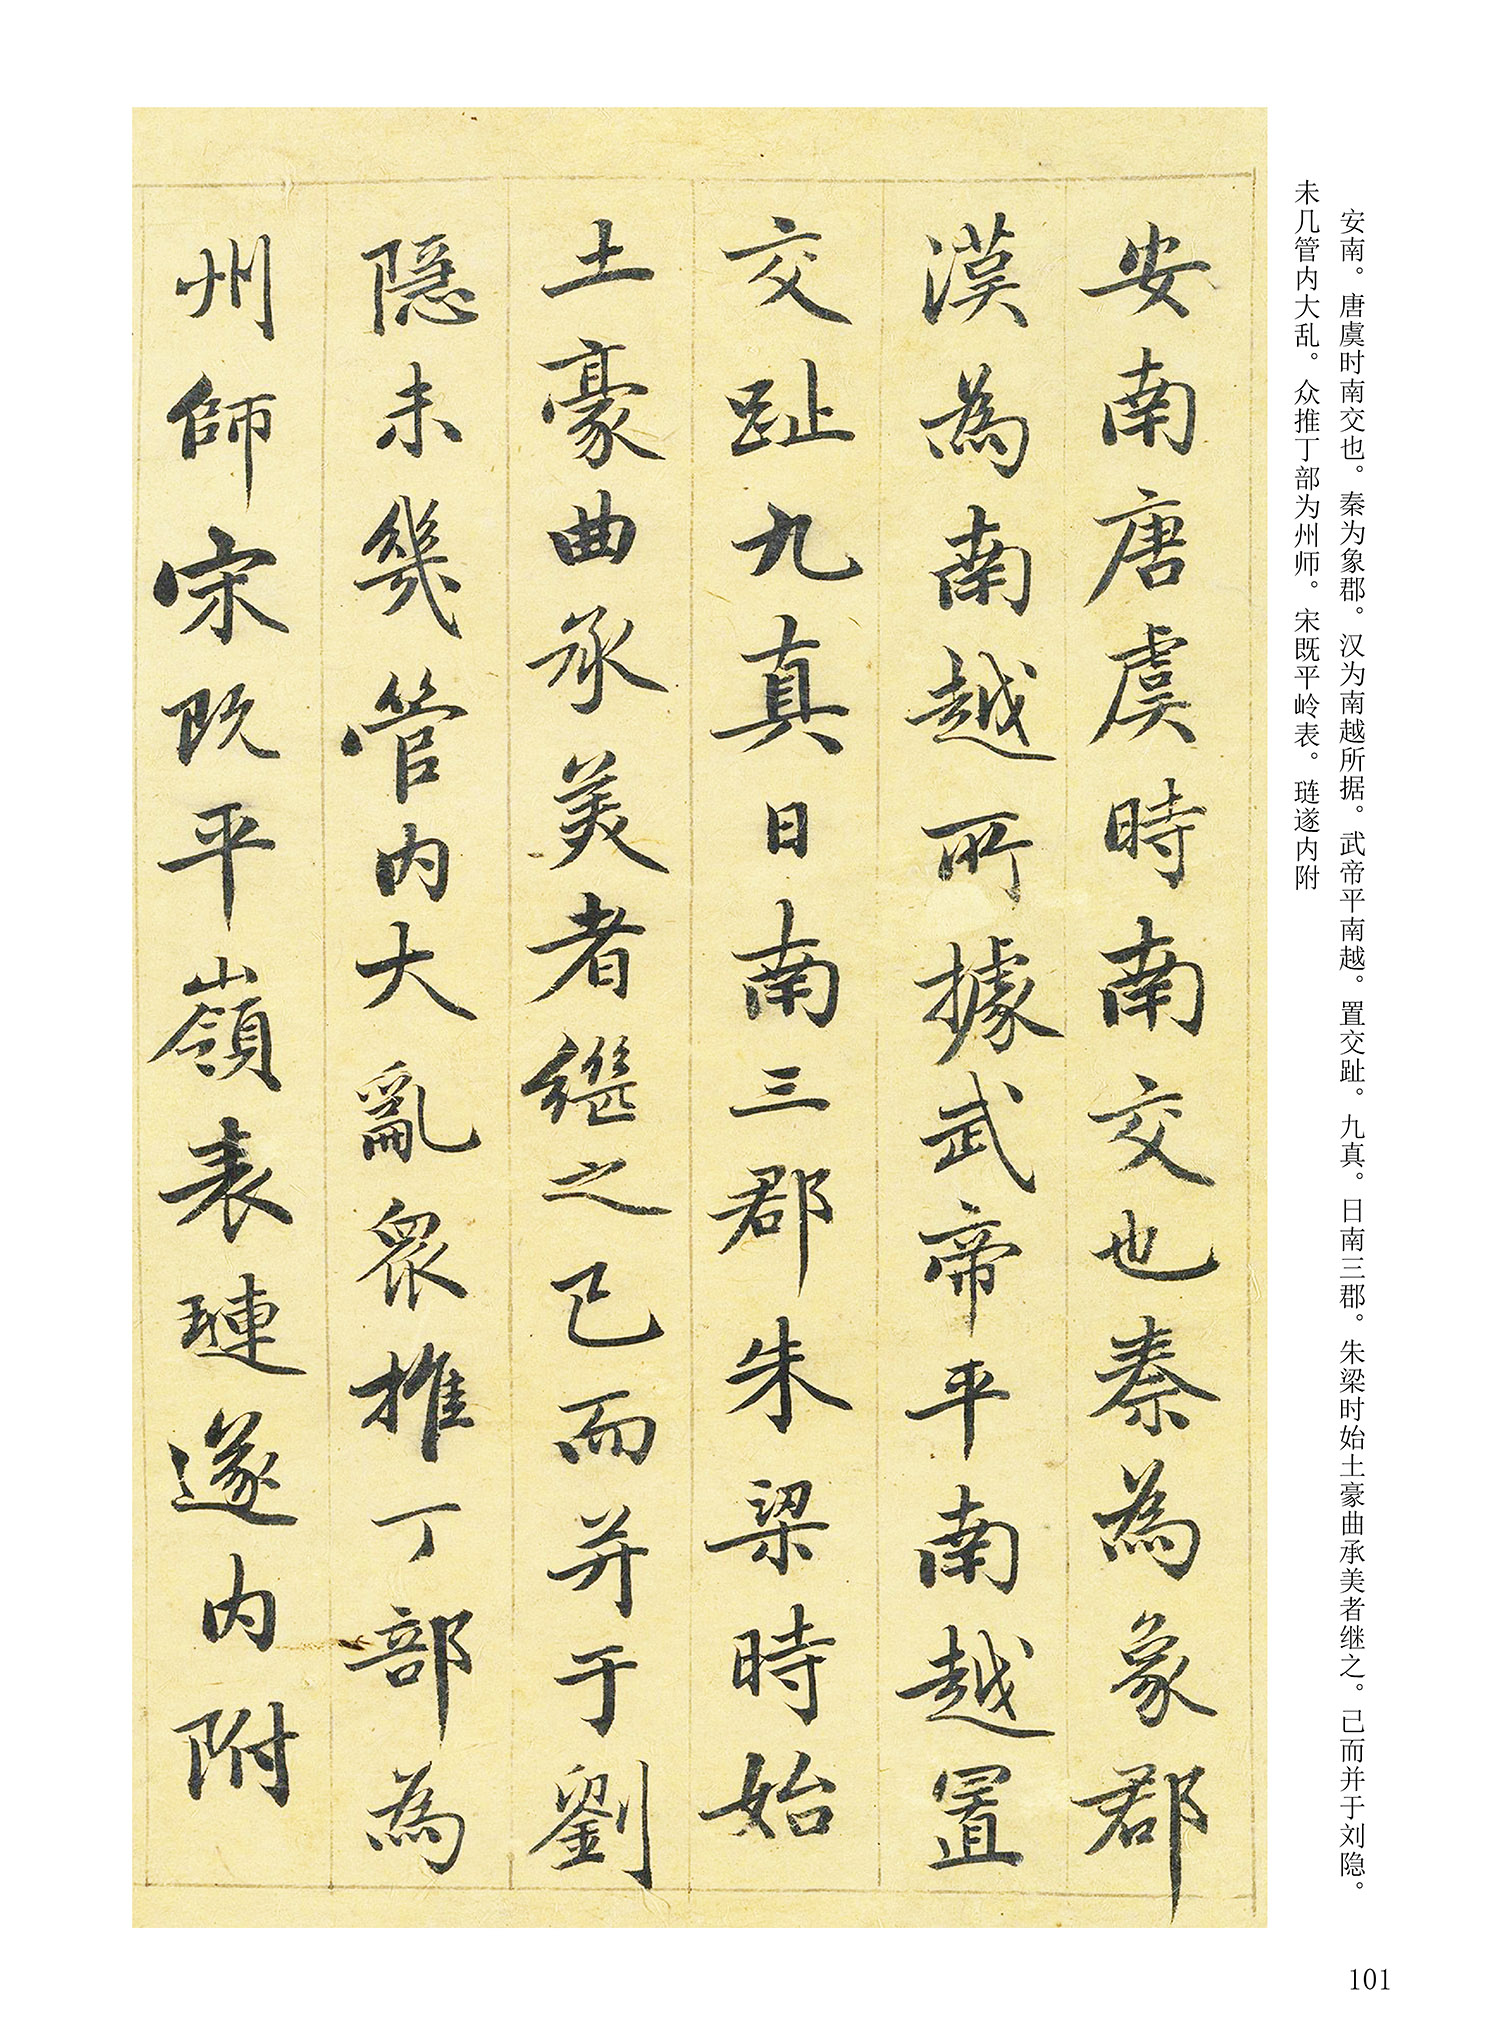 安南。唐虞时南交也。秦为象郡。汉为南越所据。武帝平南越。置交趾。九真。日南三郡。朱梁时始土豪曲承美者继之。已而并于刘隐。
未几管内大乱。众推丁部为州师。宋既平岭表。琏遂内附
安南唐虞時南交也秦為象郡
漢為南越所據武帝平南越置
交趾九真日南三郡朱梁時始
土豪曲承美者繼之已而并于劉
隱未幾管内大亂衆推丁部為
州師宋既平嶺表璉遂内附
101